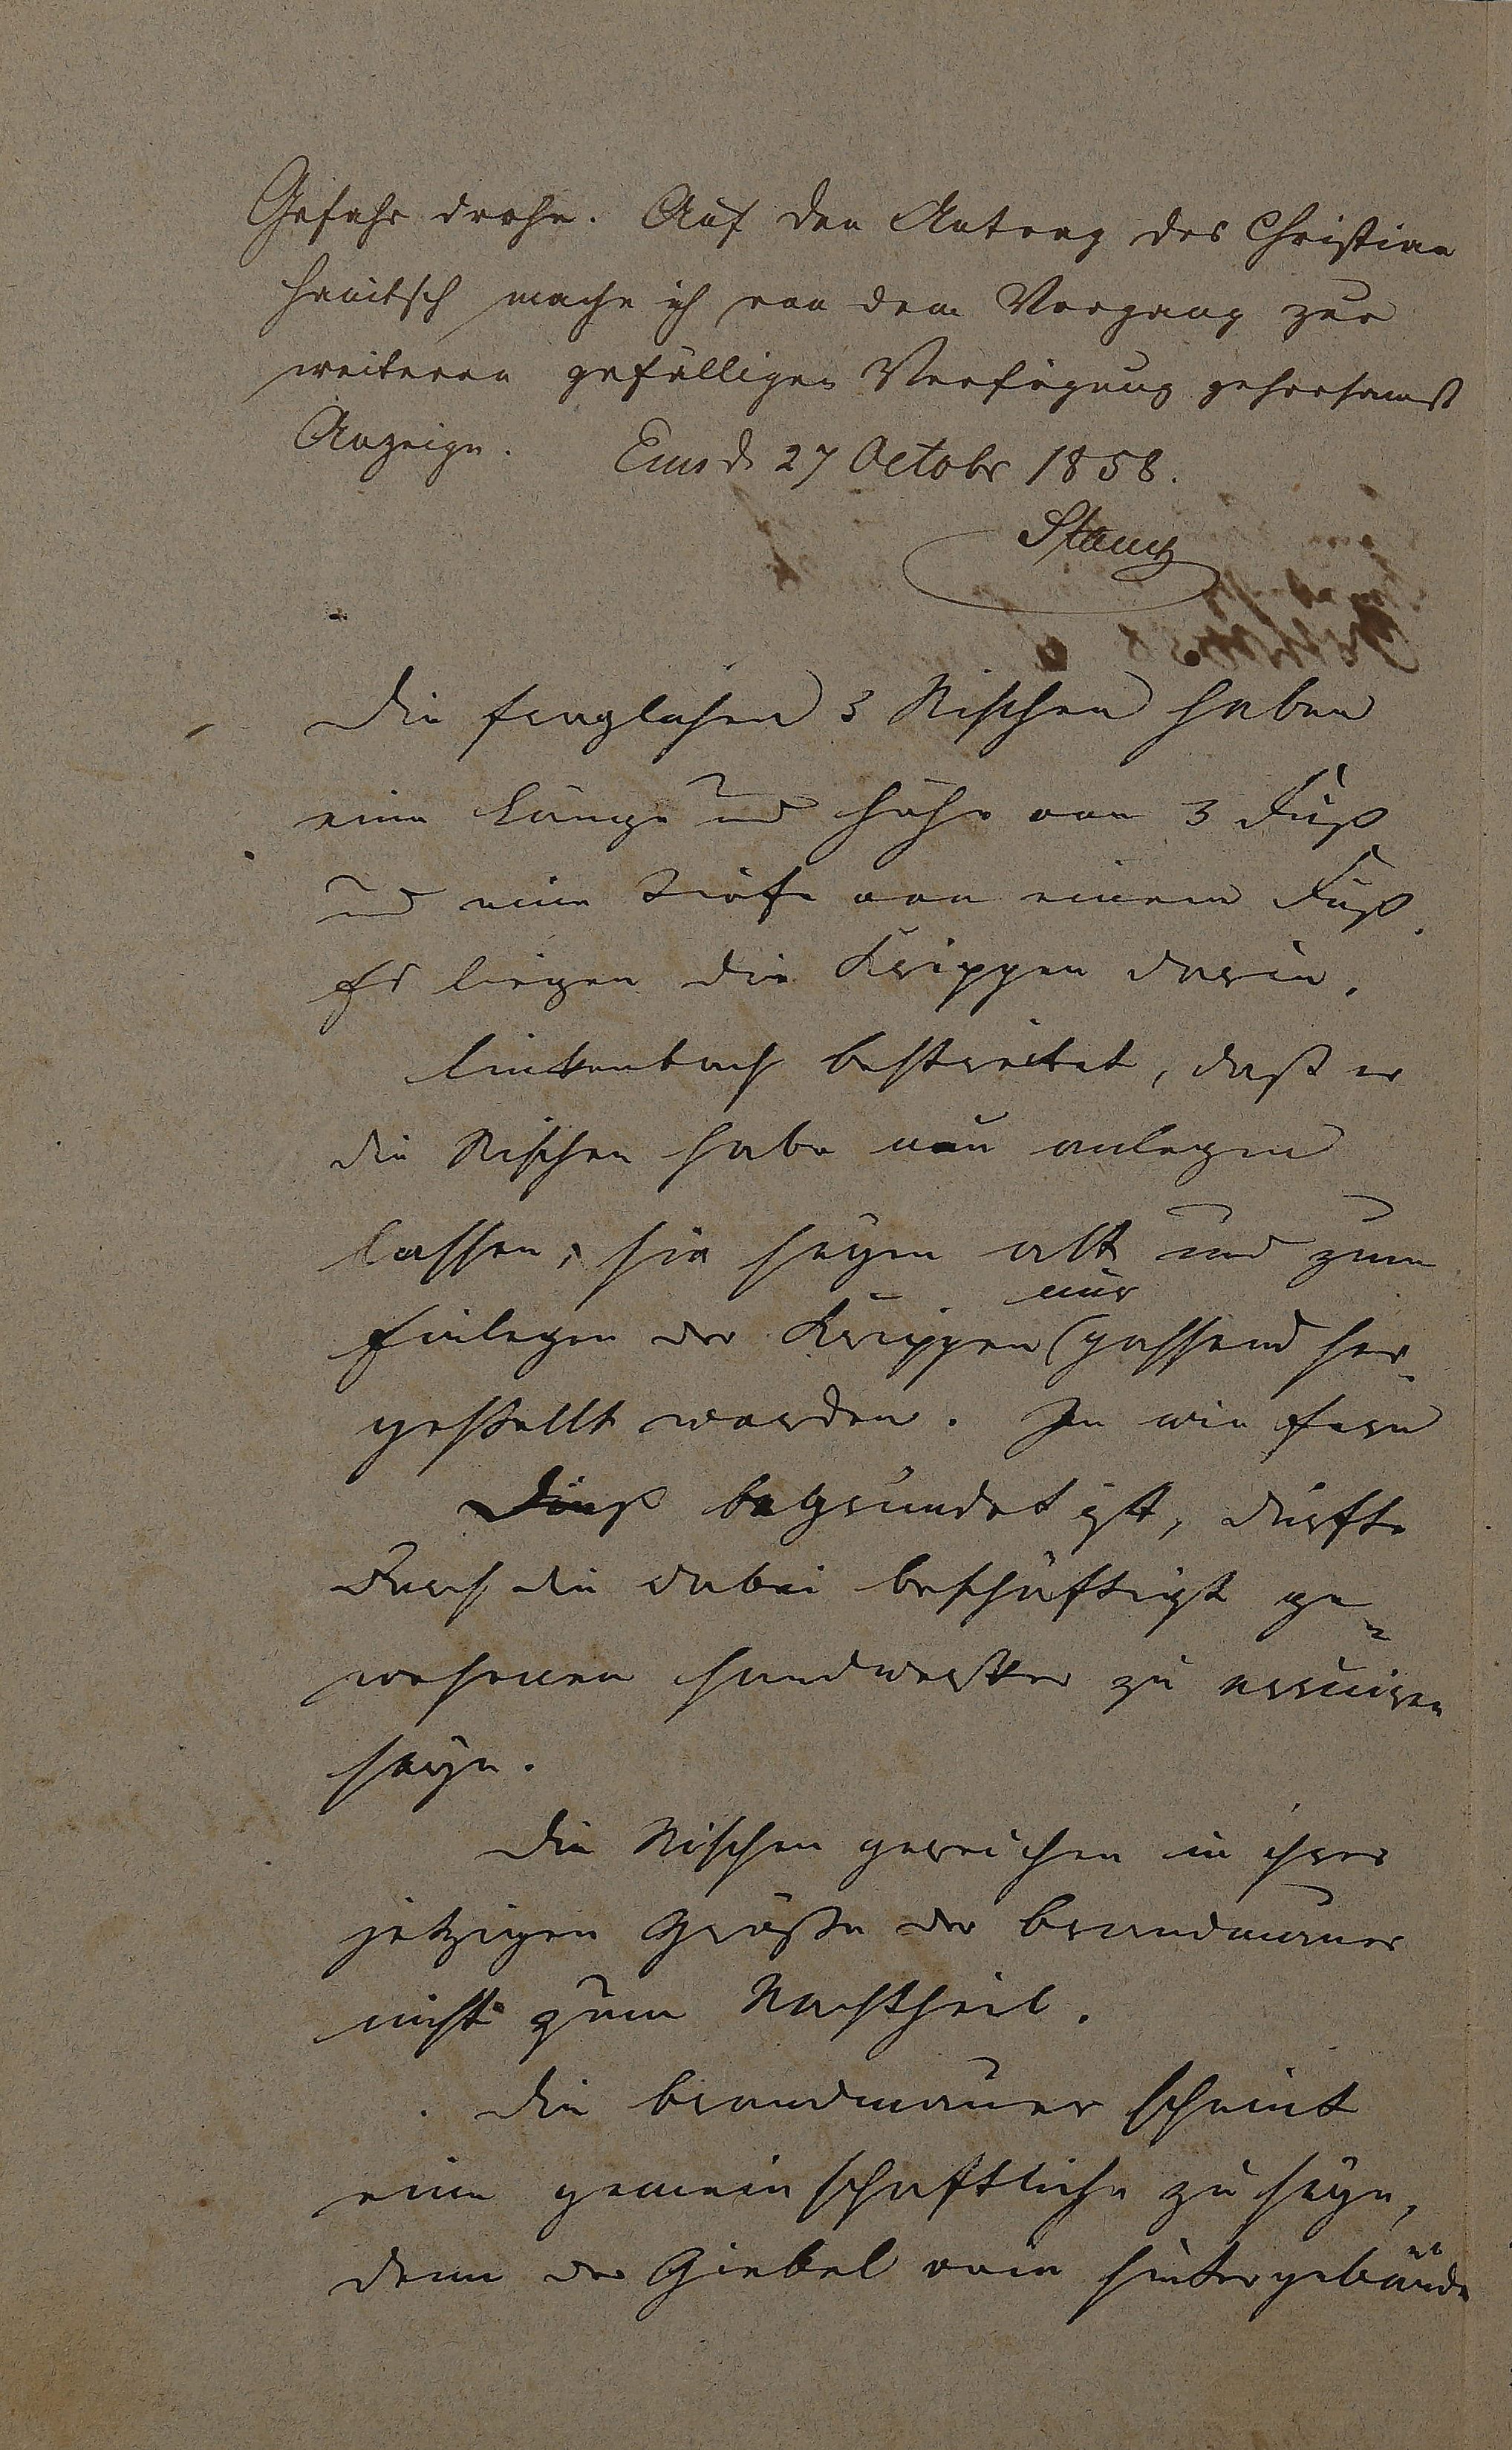 Gefahr drohe. Auf den Antrag des Christian
Hanitsch mache ich von dem Vorgang zur
weiteren gefälligen Verfügung gehorsamst
Anzeige. Ems d. 27 Octobr 1858.
Die fraglichen 3 Nischen haben
eine Länge und Höhe von 3 Fuß
und eine Tiefe von einem Fuß.
Es liegen die Krippen darin.
Linkenbach bestreitet, daß er
die Nischen habe neu anlegen
lassen, sie seyen alt und zum
nur
Einlegen der Krippen passend her-
gestellt worden. In wie fern
Dieß begründet ist, dürfte
durch die dabei beschäftigt ge-
wesenen Handwerker zu eruiren
seyn.
Die Nischen gereichen in ihrer
jetzigen Größe der Brandmauer
nicht zum Nachtheil.
Die Brandmauer scheint
eine gemeinschaftliche zu seyn,
denn der Giebel vom Hintergebäude